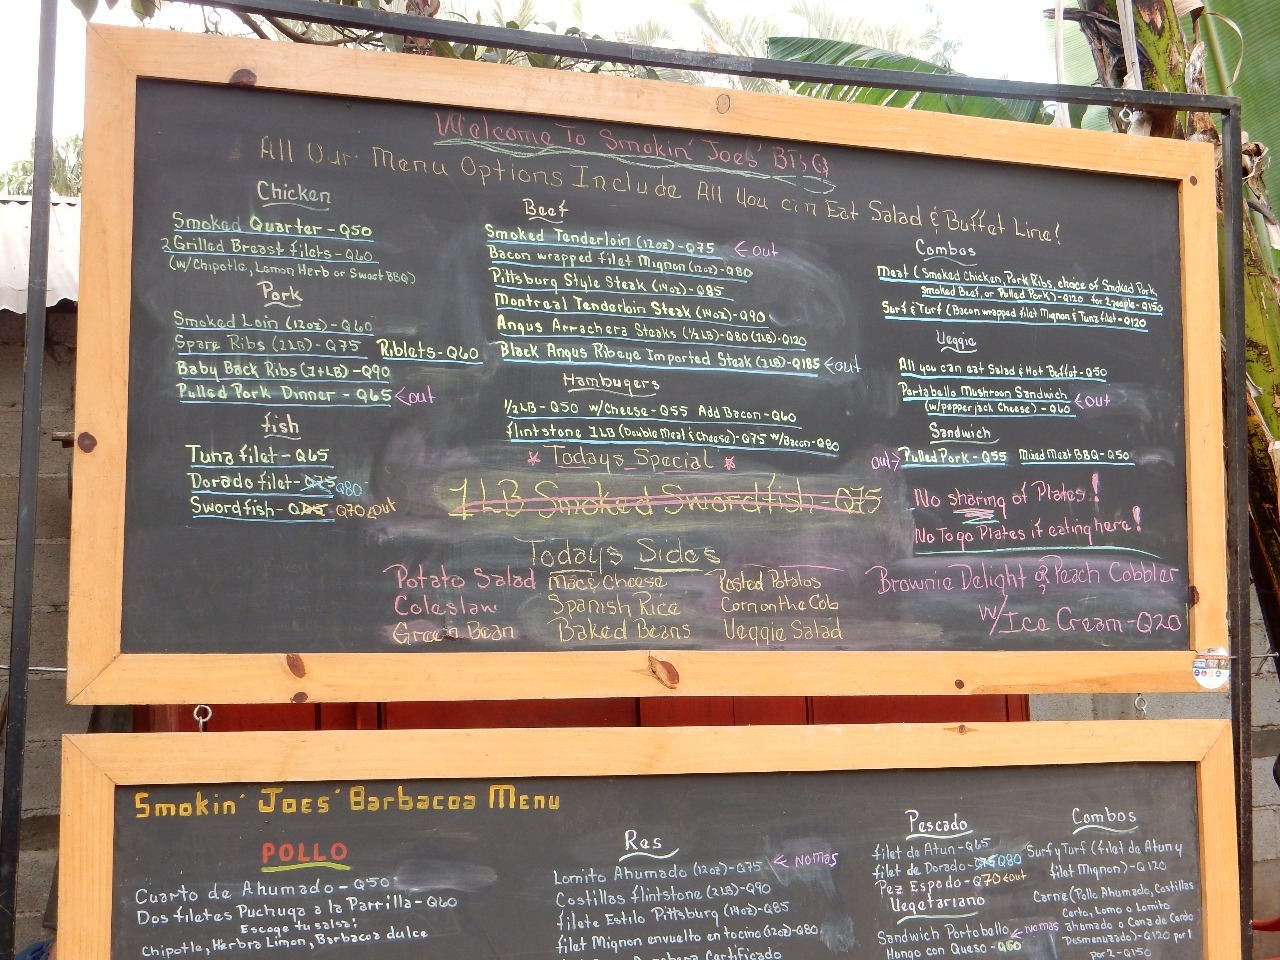 Welcome To Smokin' Joes' BBQ
All Our Menu Options Include All You can Eat Salad & Buffet Line!
Chicken
Smoked Quarter - Q50
2 Grilled Breast filets - Q60
(w/Chipotle, Lemon Herb or Sweet BBQ)
Pork
Smoked Loin (12oz) - Q60
Spare Ribs (2LB) - Q75 Riblets - Q60
Baby Back Ribs (1+LB) - Q90
Pulled Pork Dinner - Q65 ←out
fish
Tuna filet - Q65
Dorado filet - Q75 Q80
Swordfish - Q70 ←out
Beef
Smoked Tenderloin (12oz) - Q75 ←out
Bacon wrapped filet Mignon (12oz) - Q80
Pittsburg Style Steak (14oz) - Q85
Montreal Tenderloin Steak (14oz) - Q90
Angus Arrachera Steaks (1/2LB) - Q80 (1LB) - Q120
Black Angus Ribeye Imported Steak (2LB) - Q185 ←out
Hambugers
1/2LB - Q50 w/Cheese - Q55 Add Bacon - Q60
flintstone 1LB (Double Meat & Cheese) - Q75 w/Bacon - Q80
* Todays Special *
1 LB Smoked Swordfish - Q75
Combos
Meat (Smoked Chicken, Pork Ribs, choice of Smoked Pork,
Smoked Beef, or Pulled Pork) - Q120 for 2 people - Q150
Surf & Turf (Bacon wrapped filet Mignon & Tuna filet - Q120
Veggie
All you can eat Salad & Hot Buffet - Q50
Portabello Mushroom Sandwich
(w/pepperjack Cheese) - Q60 ←out
Sandwich
out→ Pulled Pork - Q55 Mixed Meat BBQ - Q50
No sharing of Plates!
No To go Plates if eating here!
Todays Sides
Potato Salad Mac & Cheese Rosted Potatos
Coleslaw Spanish Rice Corn on the Cob
Green Bean Baked Beans Veggie Salad
Brownie Delight or Peach Cobbler
w/Ice Cream - Q20
Smokin' Joes' Barbacoa Menu
POLLO
Cuarto de Ahumado - Q50
Dos filetes Puchuga a la Parrilla - Q60
Escoge tu salsa:
Chipotle, Herbra Limon, Barbacoa dulce
Res
Lomito Ahumado (12oz) - Q75 ← nomas
Costillas flintstone (2LB) - Q90
filete Estilo Pittsburg (14oz) - Q85
filet Mignon envuelto en tocino (12oz) - Q80
Certificado
Pescado
filet de Atun - Q65
filet de Dorado - Q75 Q80
Pez Espado - Q70 ←out
Vegetariano
Sandwich Portobello ← nomas
Hongo con Queso - Q60
Combos
Surf y Turf (filet de Atun y
filet Mignon) - Q120
Carne (Pollo Ahumado, Costillas
Certo, Lomo o Lomito
ahumado o Cena de Cerdo
Desmenuzado) - Q120 por 1
por 2 - Q150